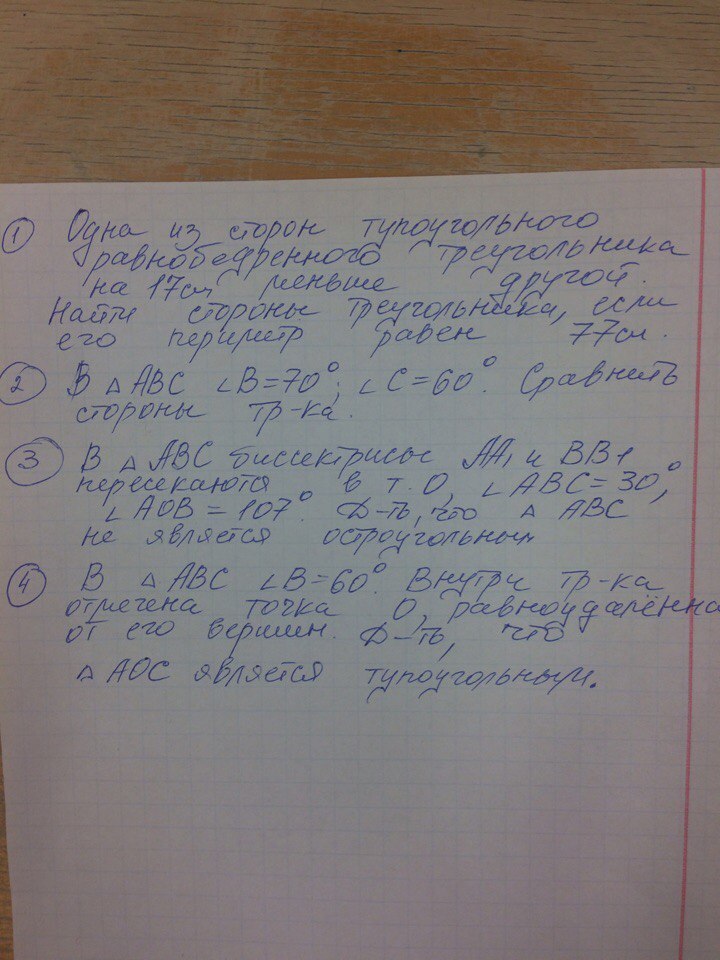 ① Одна из сторон тупоугольного
равнобедренного треугольника
на 17см меньше другой.
Найти стороны треугольника, если
его периметр равен 77см.
② В △ ABC ∠B=70°; ∠C=60°. Сравнить
стороны тр-ка.
③ В △ ABC биссектрисы AA₁ и BB1
пересекаются в т. O, ∠ABC=30°,
∠AOB=107°. Д-ть, что △ ABC
не является остроугольным
④ В △ABC ∠B=60°. Внутри тр-ка
отмечена точка O, равноудалённа
от его вершин. Д-ть, что
△ AOC является тупоугольным.